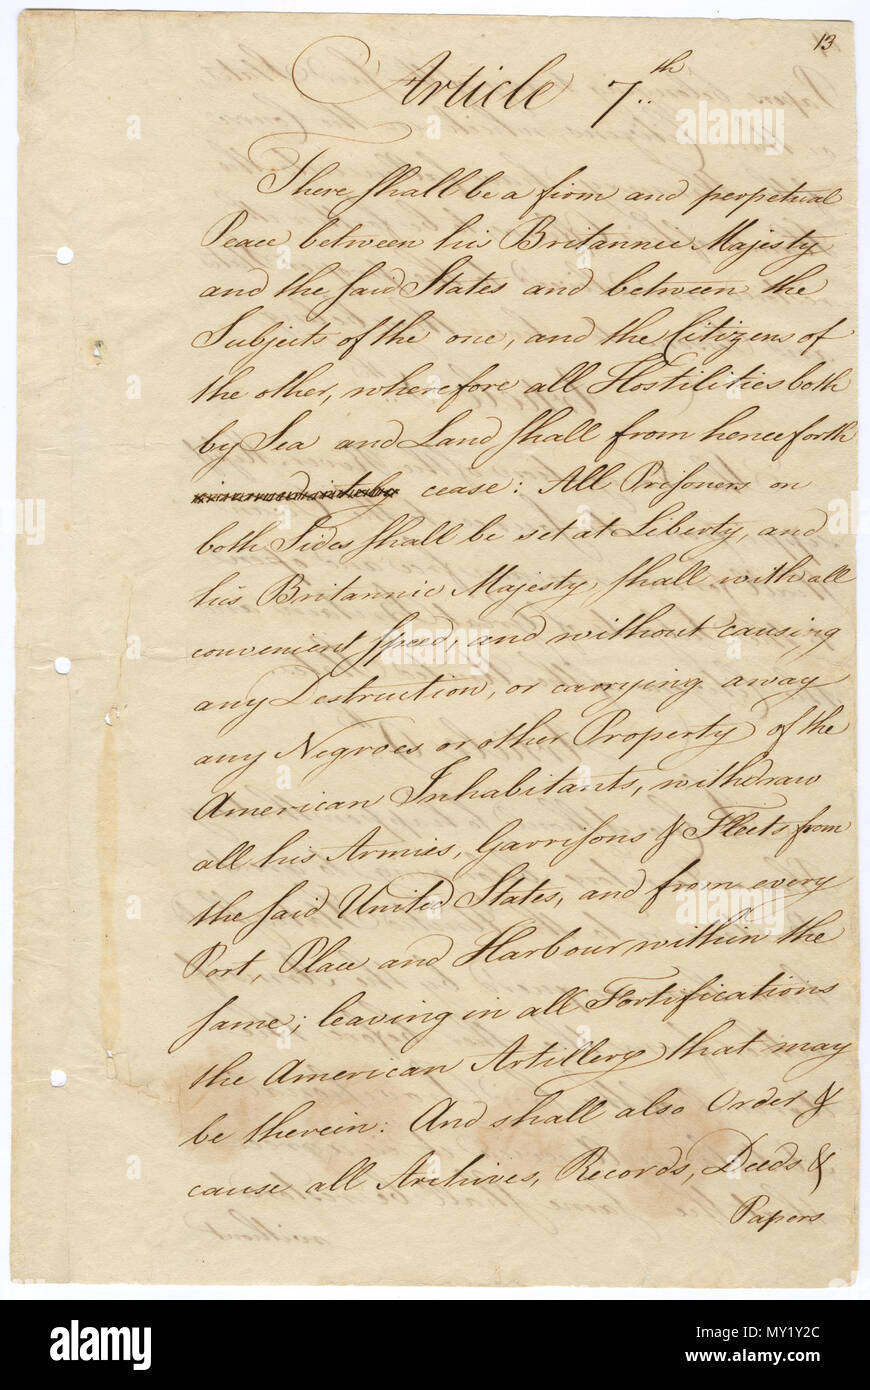 13
Article 7.th
There shall be a firm and perpetual
Peace between his Britannic Majesty
and the said States and between the
Subjects of the one, and the Citizens of
the other, wherefore all Hostilities both
by Sea and Land shall from henceforth
cease: All Prisoners on
both Sides shall be set at Liberty, and
his Britannic Majesty, shall with all
convenient speed, and without causing
any Destruction, or carrying away
any Negroes or other Property of the
American Inhabitants, withdraw
all his Armies, Garrisons & Fleets from
the said United States, and from every
Port, Place and Harbour within the
same; leaving in all Fortifications
the American Artillery that may
be therein: And shall also Order &
cause all Archives, Records, Deeds &
Papers
a alamy
alamy
Image ID: MY1Y2C
www.alamy.com